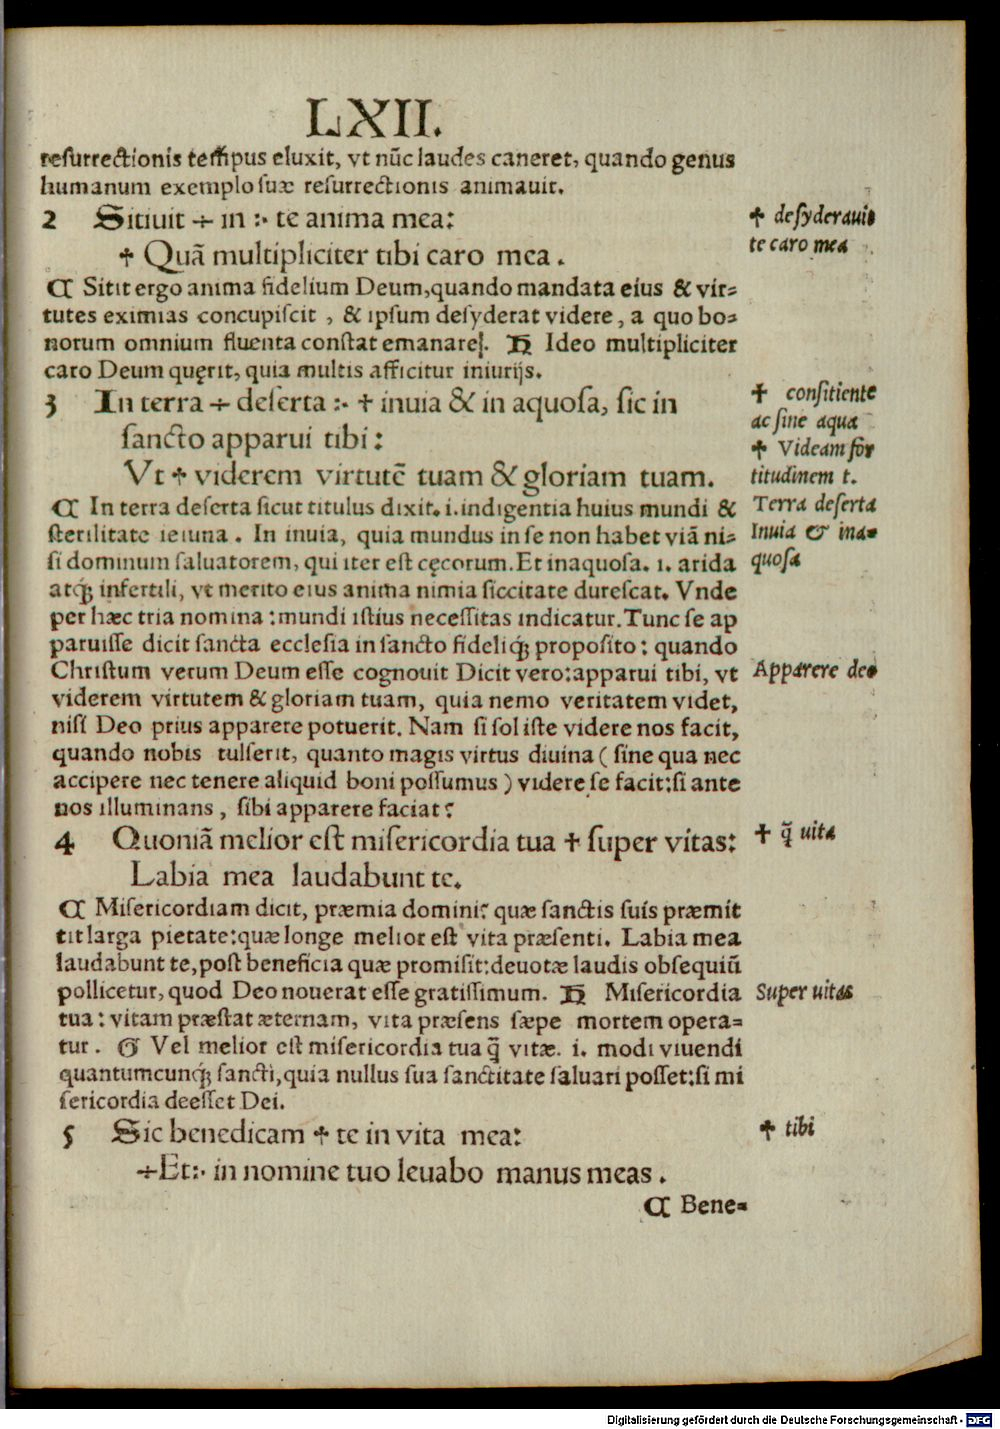 LXII.
resurrectionis tempus eluxit, vt nũc laudes caneret, quando genus
humanum exemplo suæ resurrectionis animauit.
2 Sitiuit ÷ in :· te anima mea:
✝ desyderauit
te caro mea
✝ Quã multipliciter tibi caro mea .
₵ Sitit ergo anima fidelium Deum, quando mandata eius & vir=
tutes eximias concupiscit , & ipsum desyderat videre, a quo bo=
norum omnium fluenta constat emanare. Ideo multipliciter
caro Deum quęrit, quia multis afficitur iniurijs.
3 In terra ÷ deserta :· ✝ inuia & in aquosa, sic in
✝ consitiente
ac sine aqua
sancto apparui tibi:
✝ Videam for
titudinem t.
Vt ✝ viderem virtutẽ tuam & gloriam tuam.
₵ In terra deserta sicut titulus dixit. i. indigentia huius mundi &
Terra deserta
sterilitate ieiuna . In inuia, quia mundus in se non habet viã ni=
Inuia & ina=
si dominum saluatorem, qui iter est cęcorum. Et inaquosa. i. arida
quosa
atq́ꝫ infertili, vt merito eius anima nimia siccitate durescat. Vnde
per hæc tria nomina: mundi istius necessitas indicatur. Tunc se ap
paruisse dicit sancta ecclesia in sancto fideliq́ꝫ proposito: quando
Christum verum Deum esse cognouit Dicit vero: apparui tibi, vt
Apparere deo
viderem virtutem & gloriam tuam, quia nemo veritatem videt,
nisi Deo prius apparere potuerit. Nam si sol iste videre nos facit,
quando nobis tulserit, quanto magis virtus diuina ( sine qua nec
accipere nec tenere aliquid boni possumus ) videre se facit: si ante
nos illuminans , sibi apparere faciat?
4 Quoniã melior est misericordia tua ✝ super vitas:
✝ q̃ uita
Labia mea laudabunt te.
₵ Misericordiam dicit, præmia domini: quæ sanctis suis præmit
tit larga pietate: quæ longe melior est vita præsenti. Labia mea
laudabunt te, post beneficia quæ promisit: deuotæ laudis obsequiũ
pollicetur, quod Deo nouerat esse gratissimum. Misericordia
Super uitas
tua: vitam præstat æternam, vita præsens sæpe mortem opera=
tur . Vel melior est misericordia tua q̃ vitæ. i. modi viuendi
quantumcunq́ꝫ sancti, quia nullus sua sanctitate saluari posset: si mi
sericordia deesset Dei.
5 Sic benedicam ✝ te in vita mea:
✝ tibi
÷Et:· in nomine tuo leuabo manus meas .
₵ Bene=
Digitalisierung gefördert durch die Deutsche Forschungsgemeinschaft - DFG